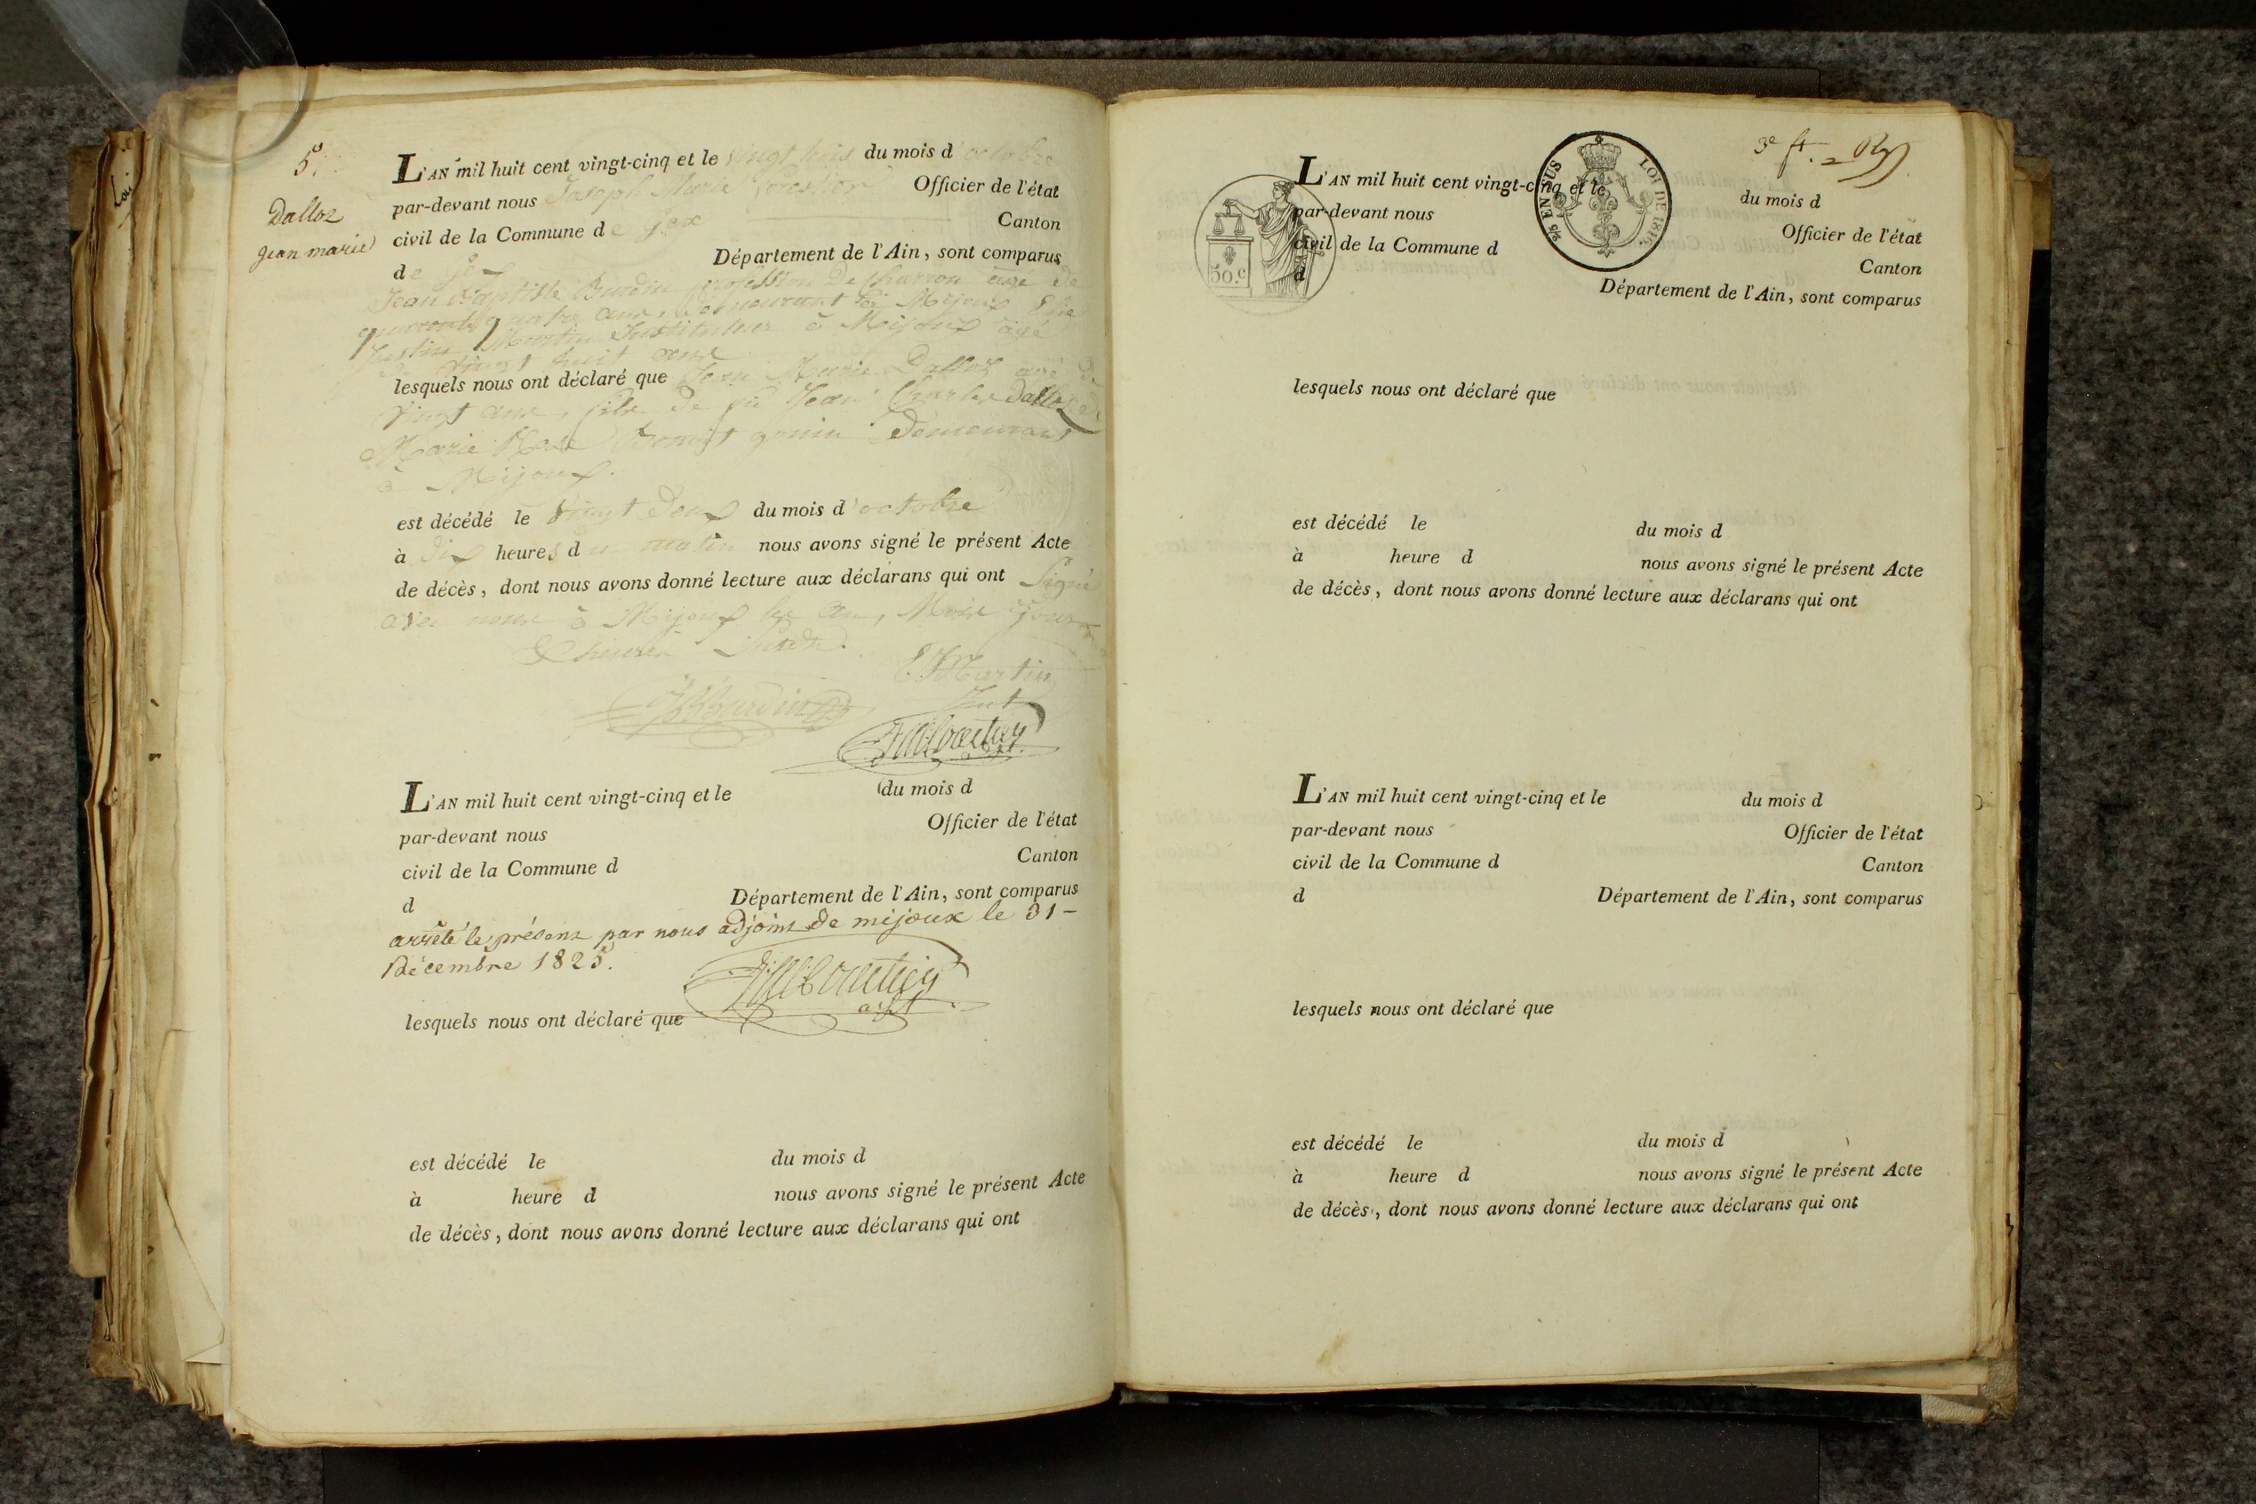 5.
Dalloz
jean marie
L'AN mil huit cent vingt-cinq et le vingt trois du mois d'octobre
par-devant nous Joseph Marie Officier de l'état
civil de la Commune de Gex Canton
de Gex Département de l'Ain, sont comparus
Jean Baptiste Burdin profession De Charron âgé de
quarante quatre ans, demeurant à Mijoux
Justin Martin Instituteur à Mijoux âgé
de vingt huit ans
lesquels nous ont déclaré que Jean Marie Dalloz âgé de
vingt ans, fils de feu Jean Charles Dalloz
Marie Rose Benoit gonin Demeurant
à Mijoux.
est décédé le vingt deux du mois d'octobre
à dix heures du matin nous avons signé le présent Acte
de décès, dont nous avons donné lecture aux déclarans qui ont signé
avec nous à Mijoux les an, Mois jour
& heures
E J Martin
Inst
JB Burdin
L'AN mil huit cent vingt-cinq et le du mois d
par-devant nous Officier de l'état
civil de la Commune d Canton
d Département de l'Ain, sont comparus
arrêté le présent par nous adjoint de mijoux le 31 –
Décembre 1825.
lesquels nous ont déclaré que
est décédé le du mois d
à heure d nous avons signé le présent Acte
de décès, dont nous avons donné lecture aux déclarans qui ont
3e ft.
LOI DE 1816.
50.c
L'AN mil huit cent vingt-cinq et le du mois d
par-devant nous Officier de l'état
civil de la Commune d Canton
d Département de l'Ain, sont comparus
lesquels nous ont déclaré que
est décédé le du mois d
à heure d nous avons signé le présent Acte
de décès, dont nous avons donné lecture aux déclarans qui ont
L'AN mil huit cent vingt-cinq et le du mois d
par-devant nous Officier de l'état
civil de la Commune d Canton
d Département de l'Ain, sont comparus
lesquels nous ont déclaré que
est décédé le du mois d
à heure d nous avons signé le présent Acte
de décès, dont nous avons donné lecture aux déclarans qui ont